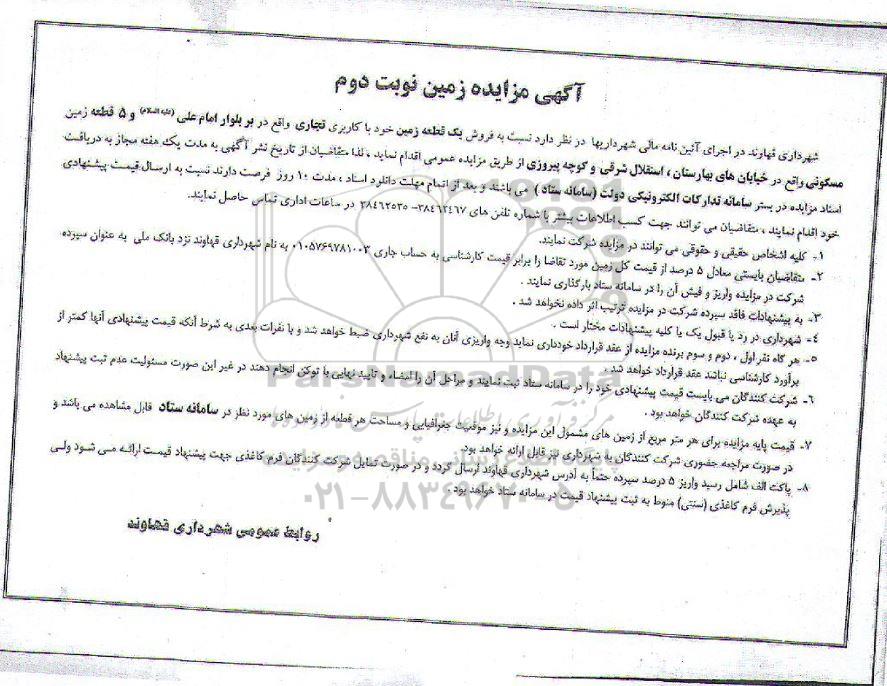 آگهی مزایده زمین نوبت دوم
شهرداری قهاوند در اجرای آئین نامه مالی شهرداریها در نظر دارد نسبت به فروش یک قطعه زمین خود با کاربری تجاری واقع در بر بلوار امام علی (علیه السلام) و ۵ قطعه زمین
مسکونی واقع در خیابان های بهارستان ، استقلال شرقی و کوچه پیروزی از طریق مزایده عمومی اقدام نماید ، لذا متقاضیان از تاریخ نشر آگهی به مدت یک هفته مجاز به دریافت
اسناد مزایده در بستر سامانه تدارکات الکترونیکی دولت (سامانه ستاد ) می باشند و بعد از اتمام مهلت دانلود اسناد ، مدت ۱۰ روز فرصت دارند نسبت به ارسال قیمت پیشنهادی
خود اقدام نمایند ، متقاضیان می توانند جهت کسب اطلاعات بیشتر با شماره تلفن های ۳۸۴۶۲۴۶۷- ۳۸۴۶۲۵۳۵ در ساعات اداری تماس حاصل نمایند.
۱- کلیه اشخاص حقیقی و حقوقی می توانند در مزایده شرکت نمایند.
۲- متقاضیان بایستی معادل ۵ درصد از قیمت کل زمین مورد تقاضا را برابر قیمت کارشناسی به حساب جاری ۰۱۰۵۷۶۹۷۸۱۰۰۳ به نام شهرداری قهاوند نزد بانک ملی به عنوان سپرده
شرکت در مزایده واریز و فیش آن را در سامانه ستاد بارگذاری نمایند .
۳- به پیشنهادات فاقد سپرده شرکت در مزایده ترتیب اثر داده نخواهد شد .
۴- شهرداری در رد یا قبول یک یا کلیه پیشنهادات مختار است .
۵- هر گاه نفر اول ، دوم و سوم برنده مزایده از عقد قرارداد خودداری نماید وجه واریزی آنان به نفع شهرداری ضبط خواهد شد و با نفرات بعدی به شرط آنکه قیمت پیشنهادی آنها کمتر از
برآورد کارشناسی نباشد عقد قرارداد خواهد شد .
۶- شرکت کنندگان می بایست قیمت پیشنهادی خود را در سامانه ستاد ثبت نمایند و مراحل آن را امضاء و تایید نهایی با توکن انجام دهند در غیر این صورت مسئولیت عدم ثبت پیشنهاد
به عهده شرکت کنندگان خواهد بود .
۷- قیمت پایه مزایده برای هر متر مربع از زمین های مشمول این مزایده و نیز موقعیت جغرافیایی و مساحت هر قطعه از زمین های مورد نظر در سامانه ستاد قابل مشاهده می باشد و
در صورت مراجعه حضوری شرکت کنندگان به شهرداری نیز قابل ارائه خواهد بود.
۸- پاکت الف شامل رسید واریز ۵ درصد سپرده حتماً به آدرس شهرداری قهاوند ارسال گردد و در صورت تمایل شرکت کنندگان فرم کاغذی جهت پیشنهاد قیمت ارائه می شود ولی
پذیرش فرم کاغذی (سنتی) منوط به ثبت پیشنهاد قیمت در سامانه ستاد خواهد بود .
روابط عمومی شهرداری قهاوند
ParsNamadData
۰۲۱-۸۸۳۴۹۶۷۰-۵